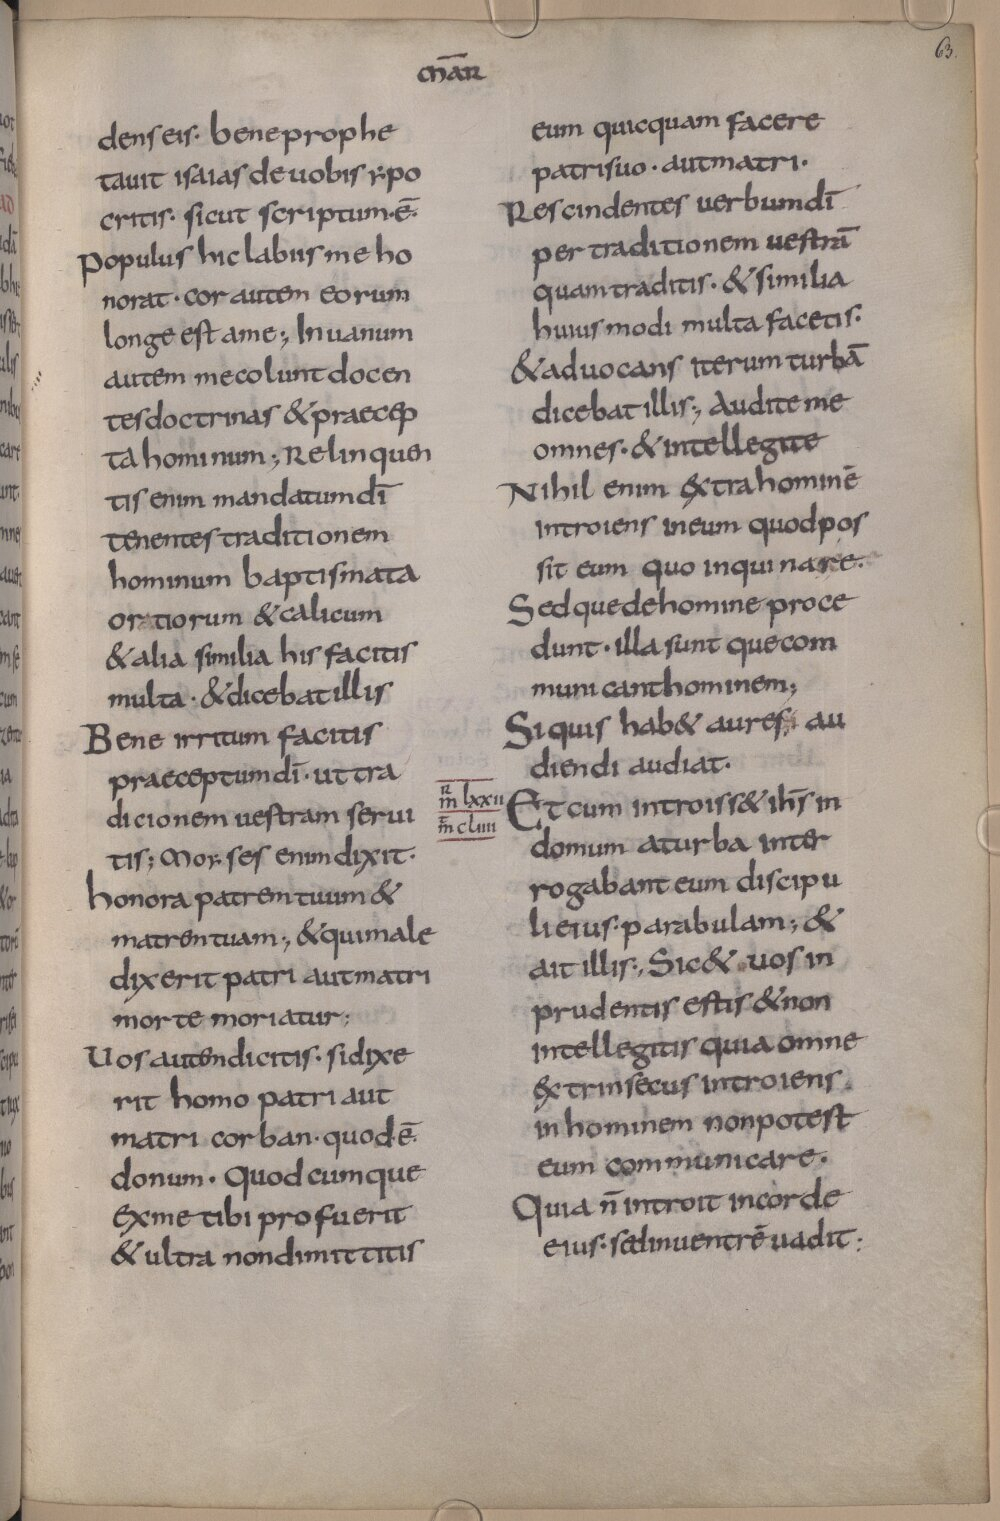 63.
mar̄
dens eis· bene prophe
tauit isaias de uobis ypo
critis· sicut scriptum·ē·
Populus hic labiis me ho
norat· cor autem eorum
longe est a me; In uanum
autem me colunt docen
tes doctrinas & praecep
ta hominum; Relinquen
tis enim mandatum dī
tenentes traditionem
hominum baptismata
or tiorum & calicum
& alia similia his facitis
multa· & dicebat illis
Bene irritum facitis
praeceptum dī· ut tra
dicionem uestram serui
tis; Moyses enim dixit·
honora patrem tuum &
matrem tuam; & qui male
dixerit patri aut matri
morte moriatur;
Uos autem dicitis· si dixe
rit homo patri aut
matri corban· quod·ē·
donum· Quodcumque
ex me tibi profuerit
& ultra non dimittitis
eum quicquam facere
patri suo· aut matri·
Rescindentes uerbum dī
per traditionem uestrā
quam traditis· & similia
huius modi multa facetis·
& aduocans iterum turbā
dicebat illis; Audite me
omnes· & intellegite
Nihil enim extra hominē
introiens in eum quod pos
sit eum quo inquinare·
Sed que de homine proce
dunt· illa sunt que com
municant hominem;
Si quis hab& aures; au
diendi audiat·
R
m lxxii
m cliii
Et cum introiss& ih̄s in
domum a turba inter
rogabant eum discipu
li eius· parabulam; &
ait illis; Sic & uos in
prudentis estis & non
intellegitis quia omne
extrinsecus introiens
in hominem non potest
eum communicare·
Quia n̄ introit in cor de
eius· sed in uentrē uadit;